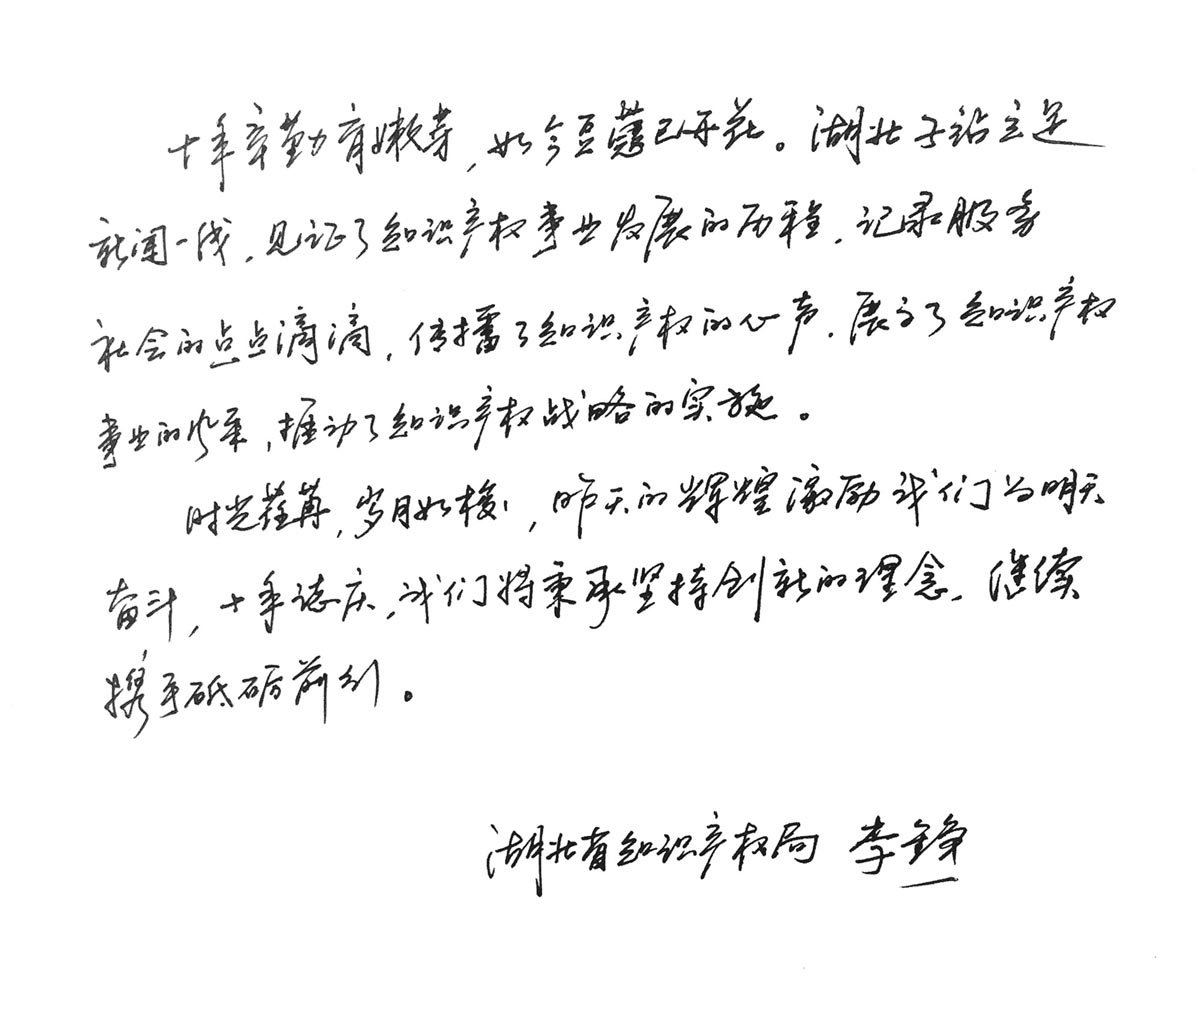 十年辛勤育嫩芽，如今豆蔻已开花。湖北子站立足
新闻一线，见证了知识产权事业发展的历程，记录服务
社会的点点滴滴，传播了知识产权的心声，展了知识产权
事业的成果，推动了知识产权战略的实施。
时光荏苒，岁月如梭，昨天的辉煌激励我们为明天
奋斗，十年志庆，我们将秉承坚持创新的理念，继续
携手砥砺前行。
湖北省知识产权局 李铮